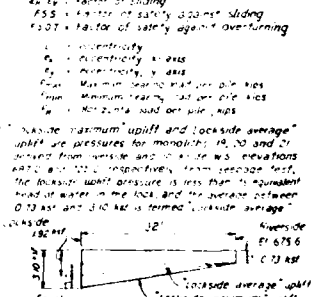 = Factor of sliding
F.S.S. = Factor of safety against sliding
F.S.O.T. = Factor of safety against overturning
= eccentricity
= eccentricity, x axis
ey = eccentricity, y axis
Maximum bearing load per pile, kips
Minimum bearing load per pile, kips
= Horizontal load per pile, kips
"Lockside maximum" uplift and "Lockside average"
uplift are pressures for monoliths 19, 20 and 21
derived from riverside and lockside w.s. elevations
respectively, from seepage test,
the lockside uplift pressure is less than its equivalent
head of water in the lock, and the average between
0.73 ksf and 3.10 ksf is termed "Lockside average"
Lockside
32'
Riverside
1.92 ksf
El 675.6
3.10 ksf
0.73 ksf
"Lockside average" uplift